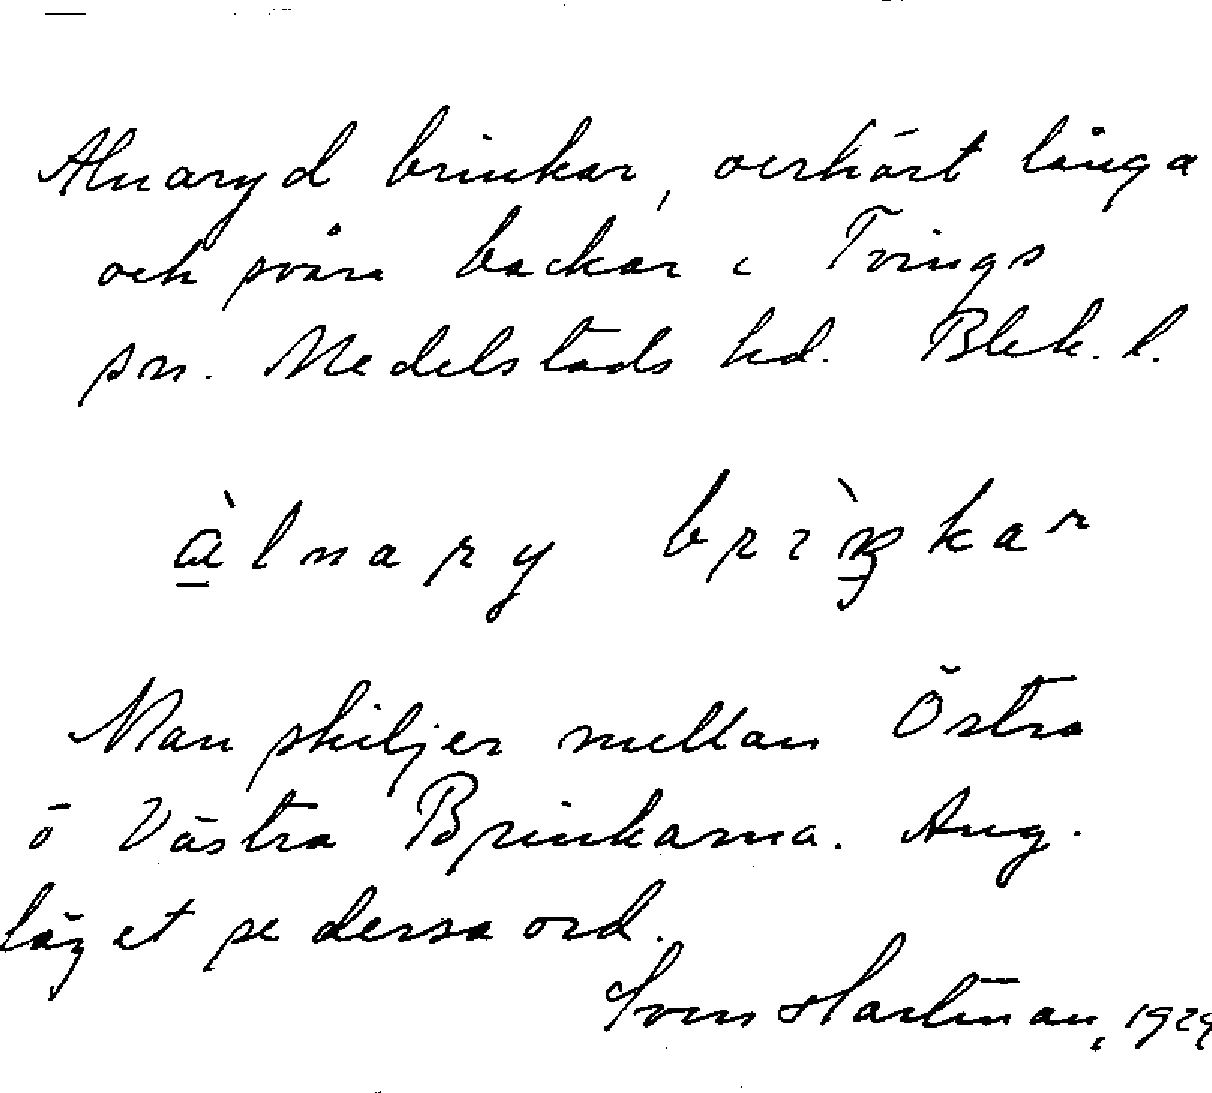 Alnaryd brinkar, oerhört långa
och svåra backar i Tvings
sn. Medelstads hd. Blek. l.
àlnary brìŋkar
Man skiljer mellan Östra
o Västra Brinkarna. Ang.
läget se dessa ord.
Sven Hartman, 1929